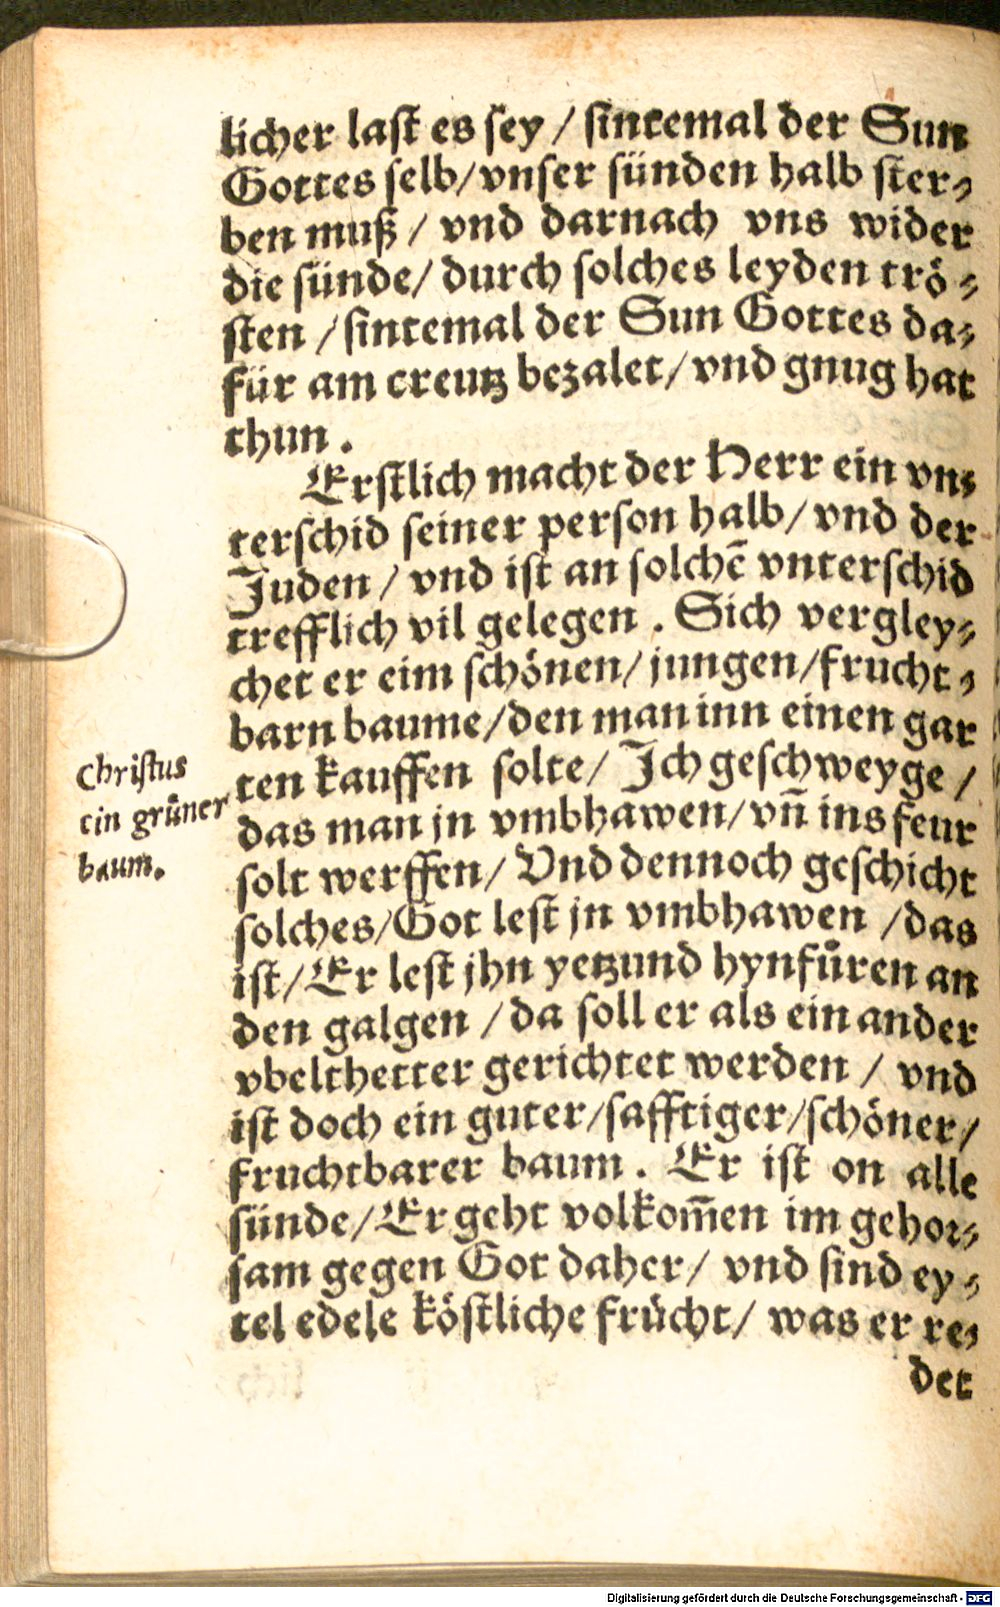 licher last es sey / sintemal der Sun
Gottes selb/vnser sünden halb ster⸗
ben muß / vnd darnach vns wider
die sünde/ durch solches leyden trö⸗
sten / sintemal der Sun Gottes da⸗
für am creutz bezalet/vnd gnug hat
thun.
Erstlich macht der Herr ein vn⸗
terschid seiner person halb/vnd der
Juden / vnd ist an solchē vnterschid
trefflich vil gelegen. Sich vergley⸗
chet er eim schönen/jungen/frucht⸗
barn baume/den man inn einen gar
ten kauffen solte/ Ich geschweyge /
das man jn vmbhawen/vn̄ ins feur
solt werffen/ Vnd dennoch geschicht
solches/Got lest jn vmbhawen /das
ist/Er lest jhn yetzund hynfuͤren an
den galgen /da soll er als ein ander
vbelthetter gerichtet werden / vnd
ist doch ein guter/safftiger/schöner/
fruchtbarer baum. Er ist on alle
sünde/Er geht volkom̄en im gehor⸗
sam gegen Got daher/ vnd sind ey⸗
tel edele köstliche frücht/ was er re⸗
det
Christus
ein gruͤner
baum.
Digitalisierung gefördert durch die Deutsche Forschungsgemeinschaft - DFG